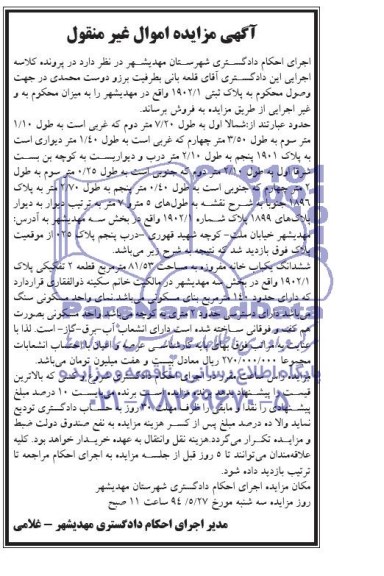 آگهی مزایده اموال غیر منقول
اجرای احکام دادگستری شهرستان مهدیشهر در نظر دارد در پرونده کلاسه
اجرایی این دادگستری آقای قلعه بانی بطرفیت برزو دوست محمدی در جهت
وصول محکوم به پلاک ثبتی ۱۹۰۲/۱ واقع در مهدیشهر را به میزان محکوم به و
غیر اجرایی از طریق مزایده به فروش برساند.
حدود عبارتند از:شمالا اول به طول ۷/۲۰ متر دوم که غربی است به طول ۱/۱۰
متر سوم به طول ۳/۵۰ متر چهارم که غربی است به طول ۱/۴۰ متر دیواری است
به پلاک ۱۹۰۱ پنجم به طول ۲/۱۰ متر درب و دیواریست به کوچه بن بست
شرقا اول به طول ۲/۱۰ متر دوم که جنوبی است به طول ۰/۲۵ متر سوم به طول
متر چهارم که جنوبی است به طول ۰/۴۰ متر پنجم به طول ۲/۷۰ متر به پلاک
۱۸۹۶ جنوبا به شرح نقشه به طول‌های ۵ مترو ۷ متر به ترتیب دیوار به دیوار
پلاک‌های ۱۸۹۹ پلاک شماره ۱۹۰۲/۱ واقع در بخش سه مهدیشهر به آدرس:
مهدیشهر خیابان ملت- کوچه شهید قهوری -درب پنجم پلاک ۰۲۵ از موقعیت
پلاک فوق بازدید شد که نتیجه به شرح زیر می‌باشد.
ششدانگ یکباب خانه مفروزه به مساحت ۸۱/۵۳ مترمربع قطعه ۲ تفکیکی پلاک
۱۹۰۲/۱ واقع در بخش سه مهدیشهر در مالکیت خانم سکینه ذوالفقاری قراردارد
که دارای حدود ۱۴۰ مترمربع بنای مسکونی می‌باشد نمای واحد مسکونی سنگ
می‌باشد دارای دسترس حدود ۲ متری به کوچه می‌باشد واحد مسکونی بصورت
هم کفه و فوقانی ساخته شده است دارای انشعاب آب-برق-گاز- است. لذا با
عنایت به مراتب فوق بهای پایه کارشناسی عرصه و اعیان با احتساب انشعابات
مجموعا ۲۷۰/۰۰۰/۰۰۰ ریال معادل بیست و هفت میلیون تومان می‌باشد.
مزایده راس ساعت مقرر در اجرای احکام دادگستری شروع و کسی که بالاترین
قیمت را پیشنهاد بدهد برنده مزایده است برنده می‌بایست ۱۰ درصد مبلغ
پیشنهادی را نقدا و مابقی را ظرف مهلت ۳۰ روز به حساب دادگستری تودیع
نماید والا ده درصد مبلغ پس از کسر هزینه مزایده به نفع صندوق دولت ضبط
و مزایده تکرار می‌گردد.هزینه نقل وانتقال به عهده خریدار خواهد بود. کلیه
علاقه‌مندان می‌توانند تا ۵ روز قبل از جلسه مزایده به اجرای احکام مراجعه تا
ترتیب بازدید داده شود.
مکان مزایده اجرای احکام دادگستری شهرستان مهدیشهر
روز مزایده سه شنبه مورخ ۹۴/۵/۲۷ ساعت ۱۱ صبح
مدیر اجرای احکام دادگستری مهدیشهر – غلامی